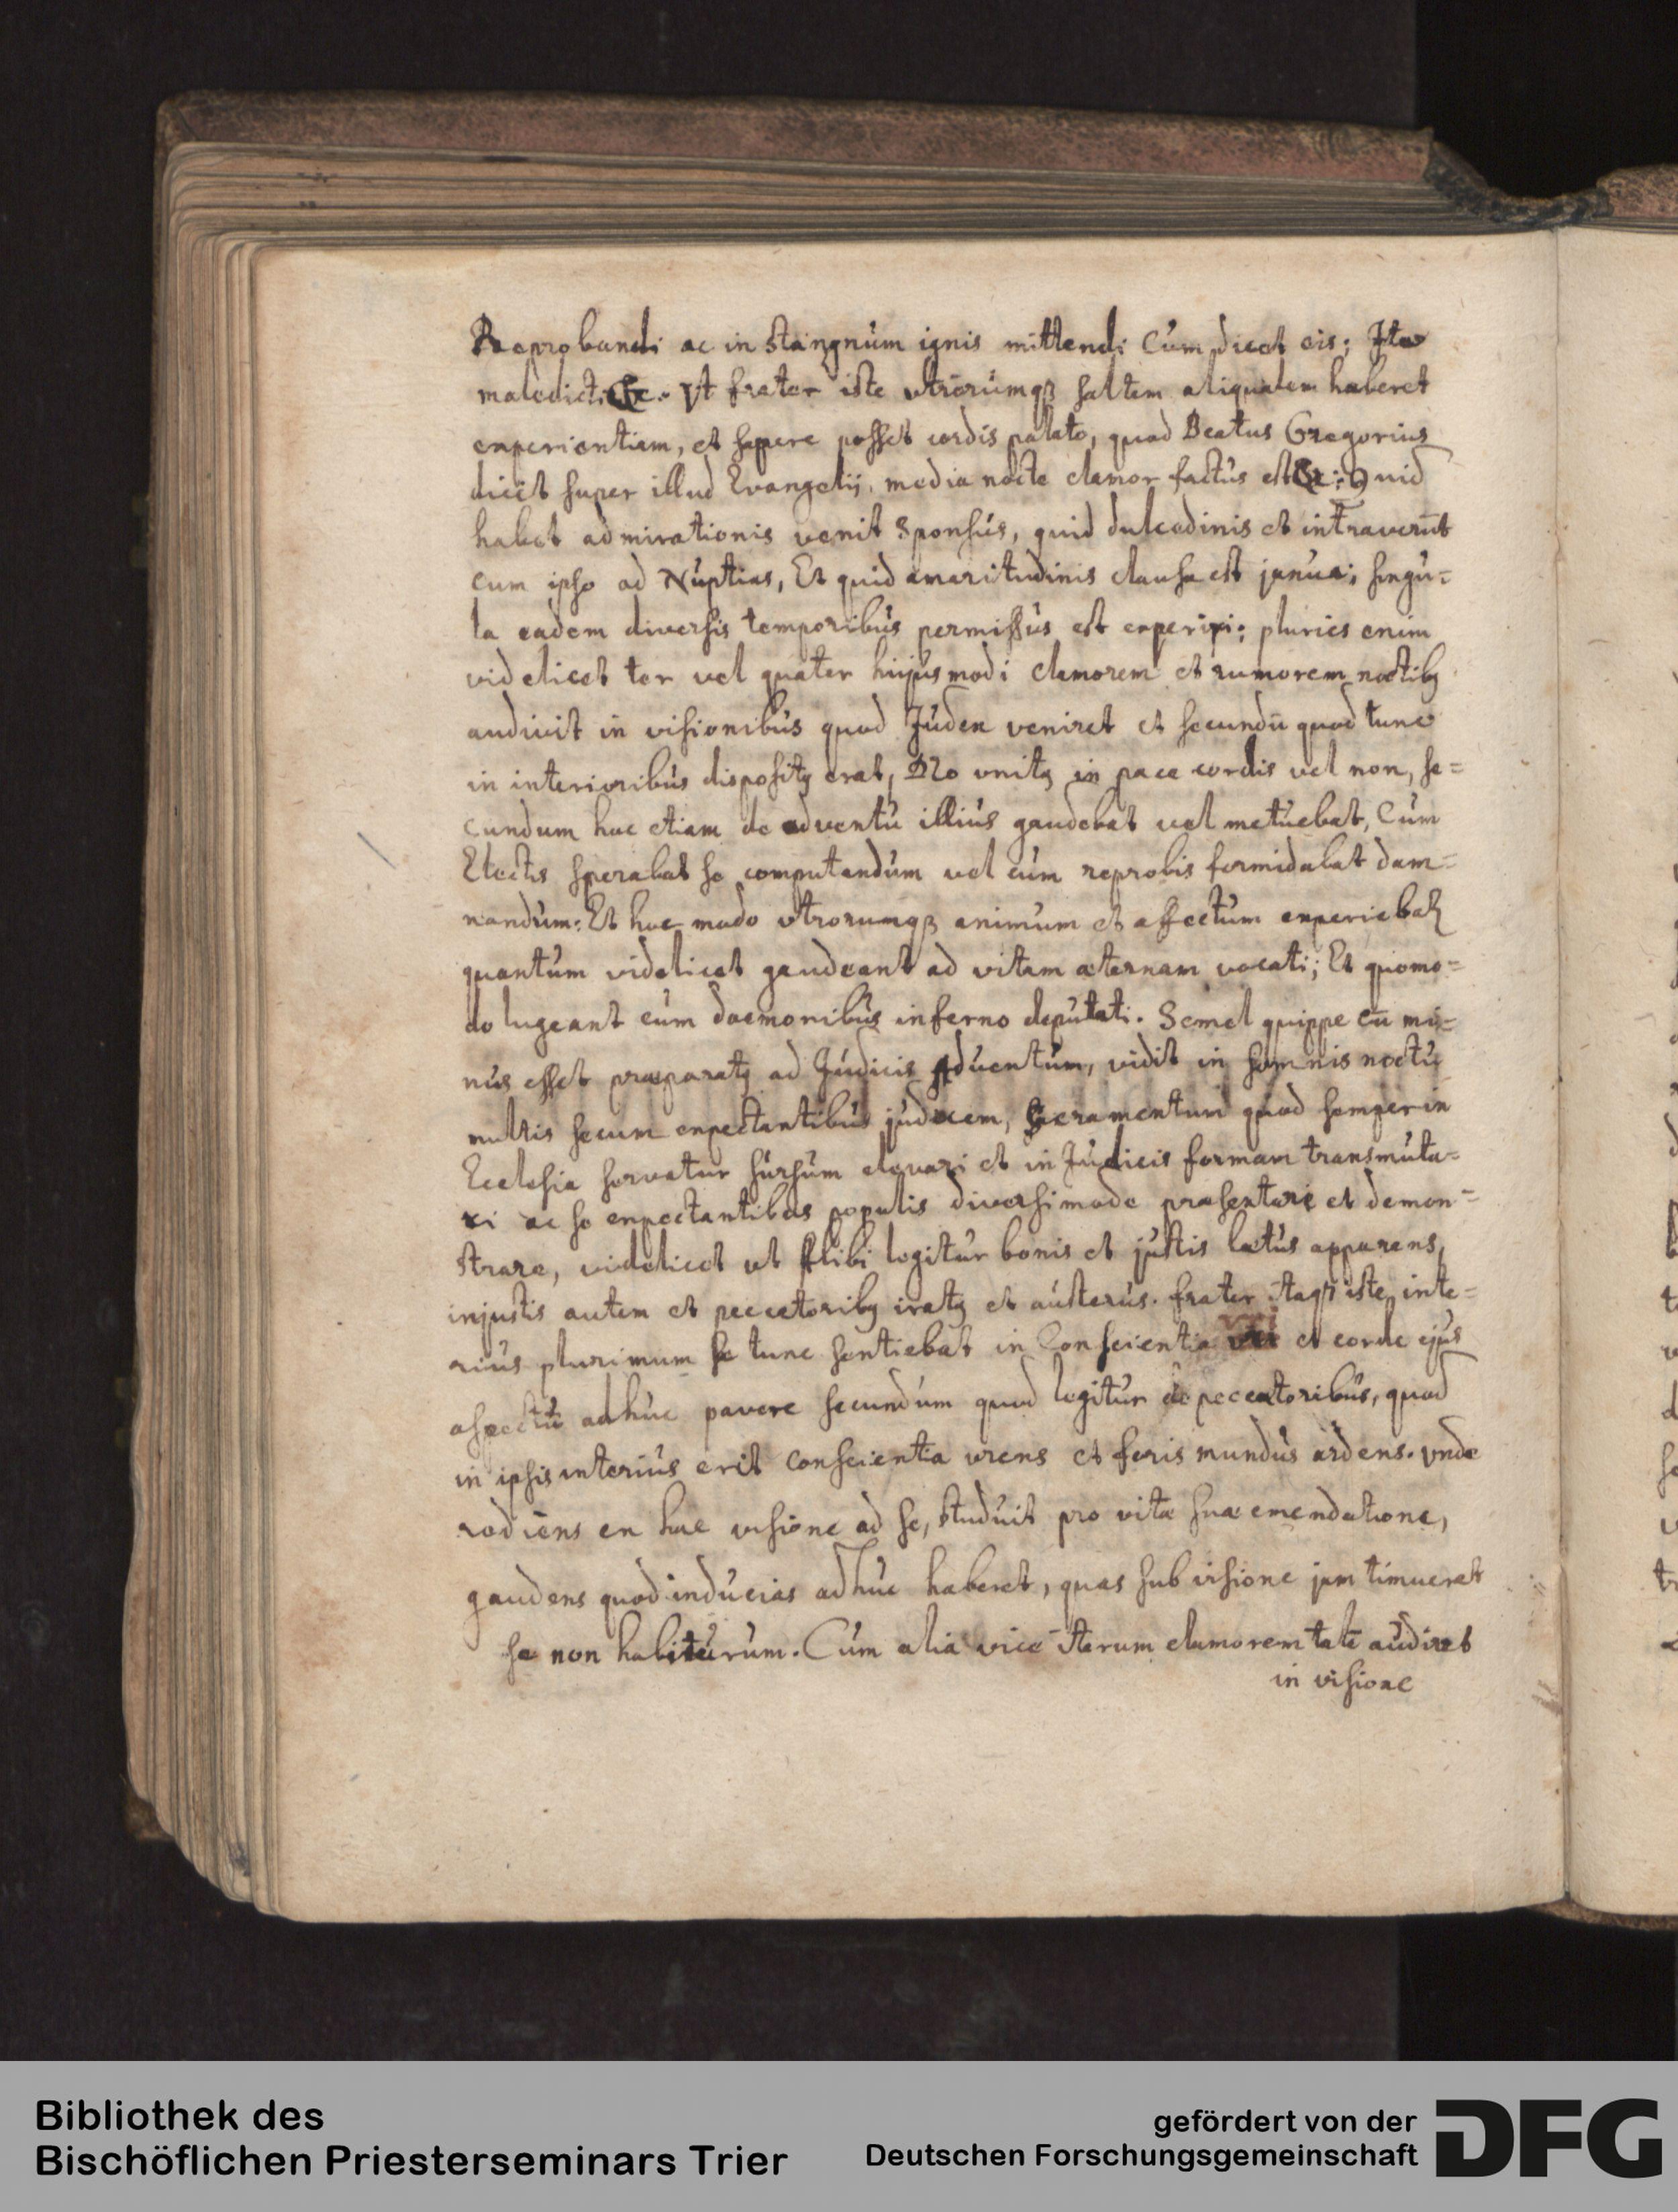 Reprobandi ac in Stangnum ignis mittendi Cum dicet eis; Ite
maledicti &c. Vt frater iste vtrorumqꝫ saltem aliqualem haberet
experientiam, et sapere posset cordis palato, quod Beatus Gregorius
dicit super illud Evangelij, media nocte clamor factus est &c: Quid
habet admirationis venit Sponsus, quid dulcedinis et intraverūt
cum ipso ad Nuptias, Et quid amaritudinis clausa est janua; singu=
la eadem diversis temporibus permissus est experiri; pluries enim
videlicet ter vel quater hujusmodi clamorem et rumorem noctibꝫ
audivit in visionibus quod Judex veniret et secundū quod tunc
in interioribus dispositꝫ erat, DNo vnitꝫ in pace cordis vel non, se=
cundum hoc etiam de adventu illius gaudebat vel metuebat, Cum
Electis sperabat se computandum vel cum reprobis formidabat dam=
nandum: Et hoc modo vtrorumqꝫ animum et affectum experiebat˜
quantum videlicet gaudeant ad vitam æternam vocati; Et quomo=
do lugeant cum daemonibus inferno deputati. Semel quippe cū mi=
nus esset præparatꝫ ad Judicis Adventum, vidit in somnis noctu
multis secum expectantibus judicem, Sacramentum quod semper in
Ecclesia servatur sursum elevari et in Judicis formam transmuta=
ri ac se expectantibus populis diversimode præsentare et demon=
strare, videlicet ut Alibi legitur bonis et justis lætus apparens,
injustis autem et peccatoribꝫ iratꝫ et austerus. frater itaqꝫ iste inte=
rius plurimum se tunc sentiebat in Conscientia vri et corde ejus
aspectū adhuc pavere secundum quod legitur de peccatoribus, quod
in ipsis interius erit conscientia vrens et foris mundus ardens. vnde
rediens ex hac visione ad se, studuit pro vitæ suæ emendatione,
gaudens quod inducias adhuc haberet, quas sub visione jam timuerat
se non habiturum. Cum alia vice iterum clamorem talē audiret
in visione
Bibliothek des
Bischöflichen Priesterseminars Trier
gefördert von der
Deutschen Forschungsgemeinschaft
DFG